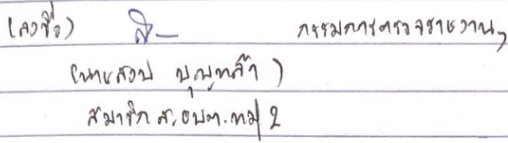 (ลงชื่อ) กรรมการตรวจรายงานฯ
(นายสอบ บุญกล้า)
สมาชิก ส.อบต. หมู่ 2